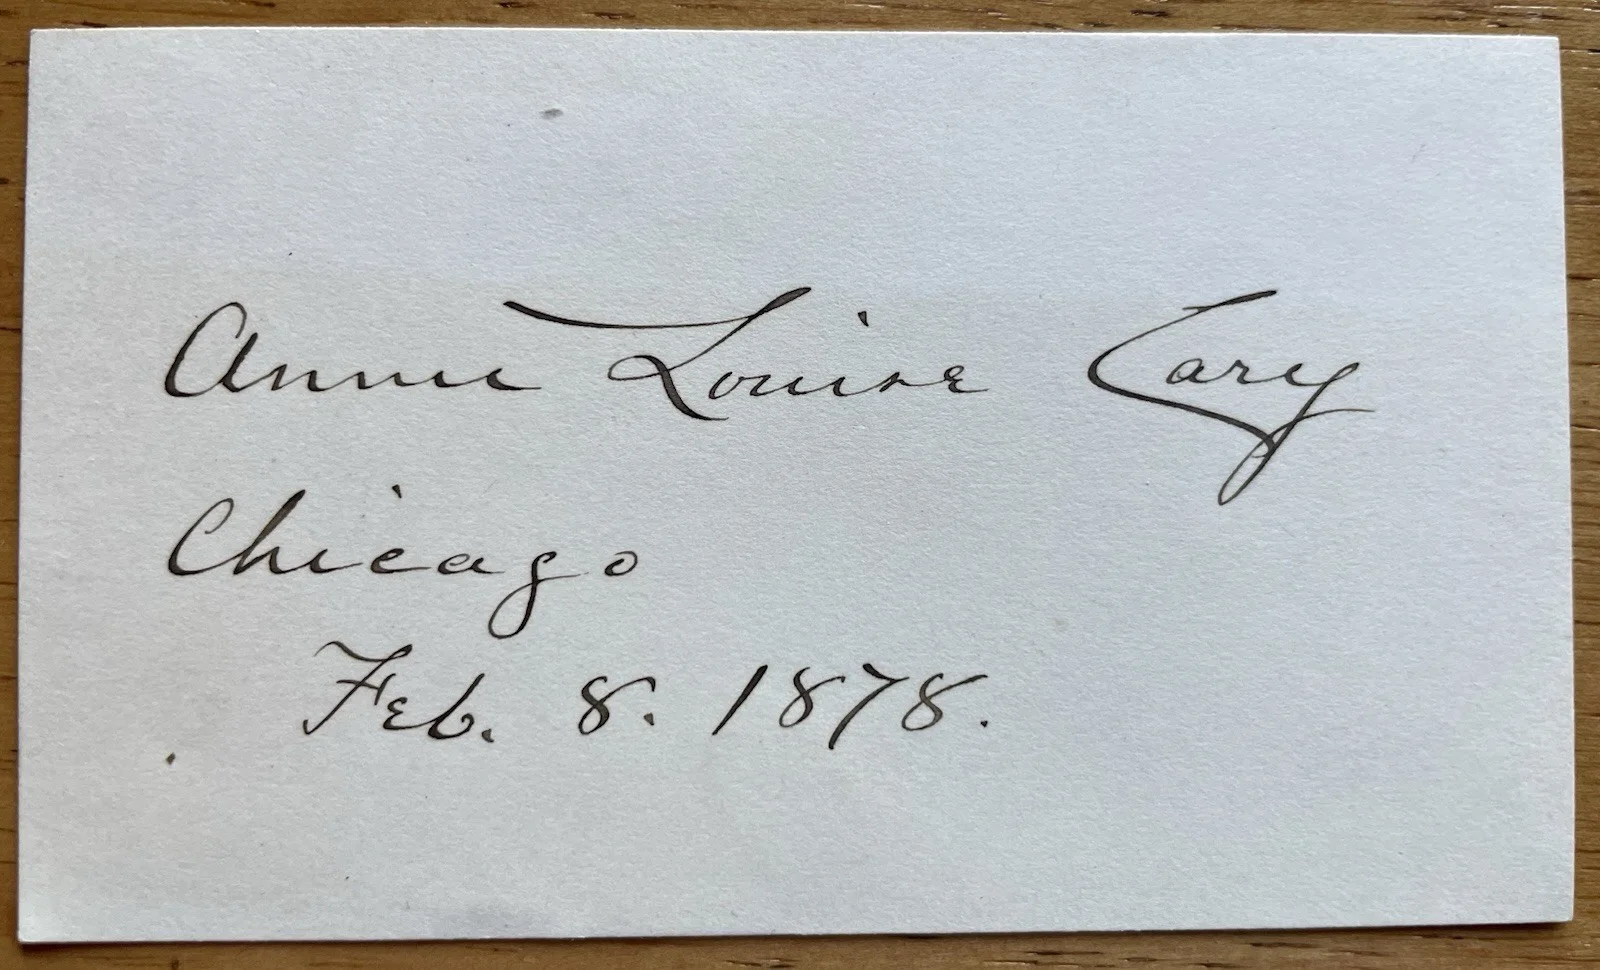 Annie Louise Cary
Chicago
Feb. 8. 1878.